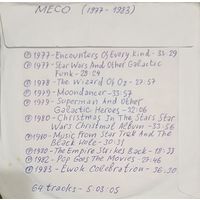 MECO (1977 - 1983)
℗ 1977 - Encounters Of Every Kind - 33:29
℗ 1977 - Star Wars And Other Galactic
Funk - 28:24
℗ 1978 - The Wizard Of Oz - 27:57
℗ 1979 - Moondancer - 33:57
℗ 1979 - Superman And Other
Galactic Heroes - 32:06
℗ 1980 - Christmas In The Stars Star
Wars Christmas Album - 33:56
℗ 1980 - Music From Star Trek And The
Black Hole - 30:31
℗ 1980 - The Empire Strikes Back - 18:33
℗ 1982 - Pop Goes The Movies - 27:46
℗ 1983 - Ewok Celebration - 36:30
64 tracks - 5:03:05